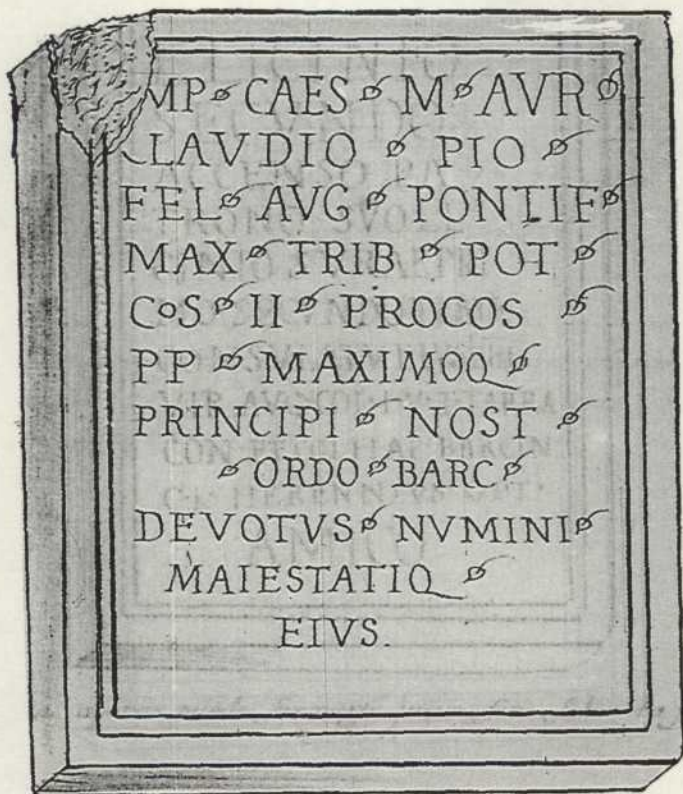 MP CAES M AVR
CLAVDIO PIO
FEL AVG PONTIF
MAX TRIB POT
CoS II PROCOS
PP MAXIMOQ
PRINCIPI NOST
ORDO BARC
DEVOTVS NVMINI
MAIESTATIQ
EIVS.